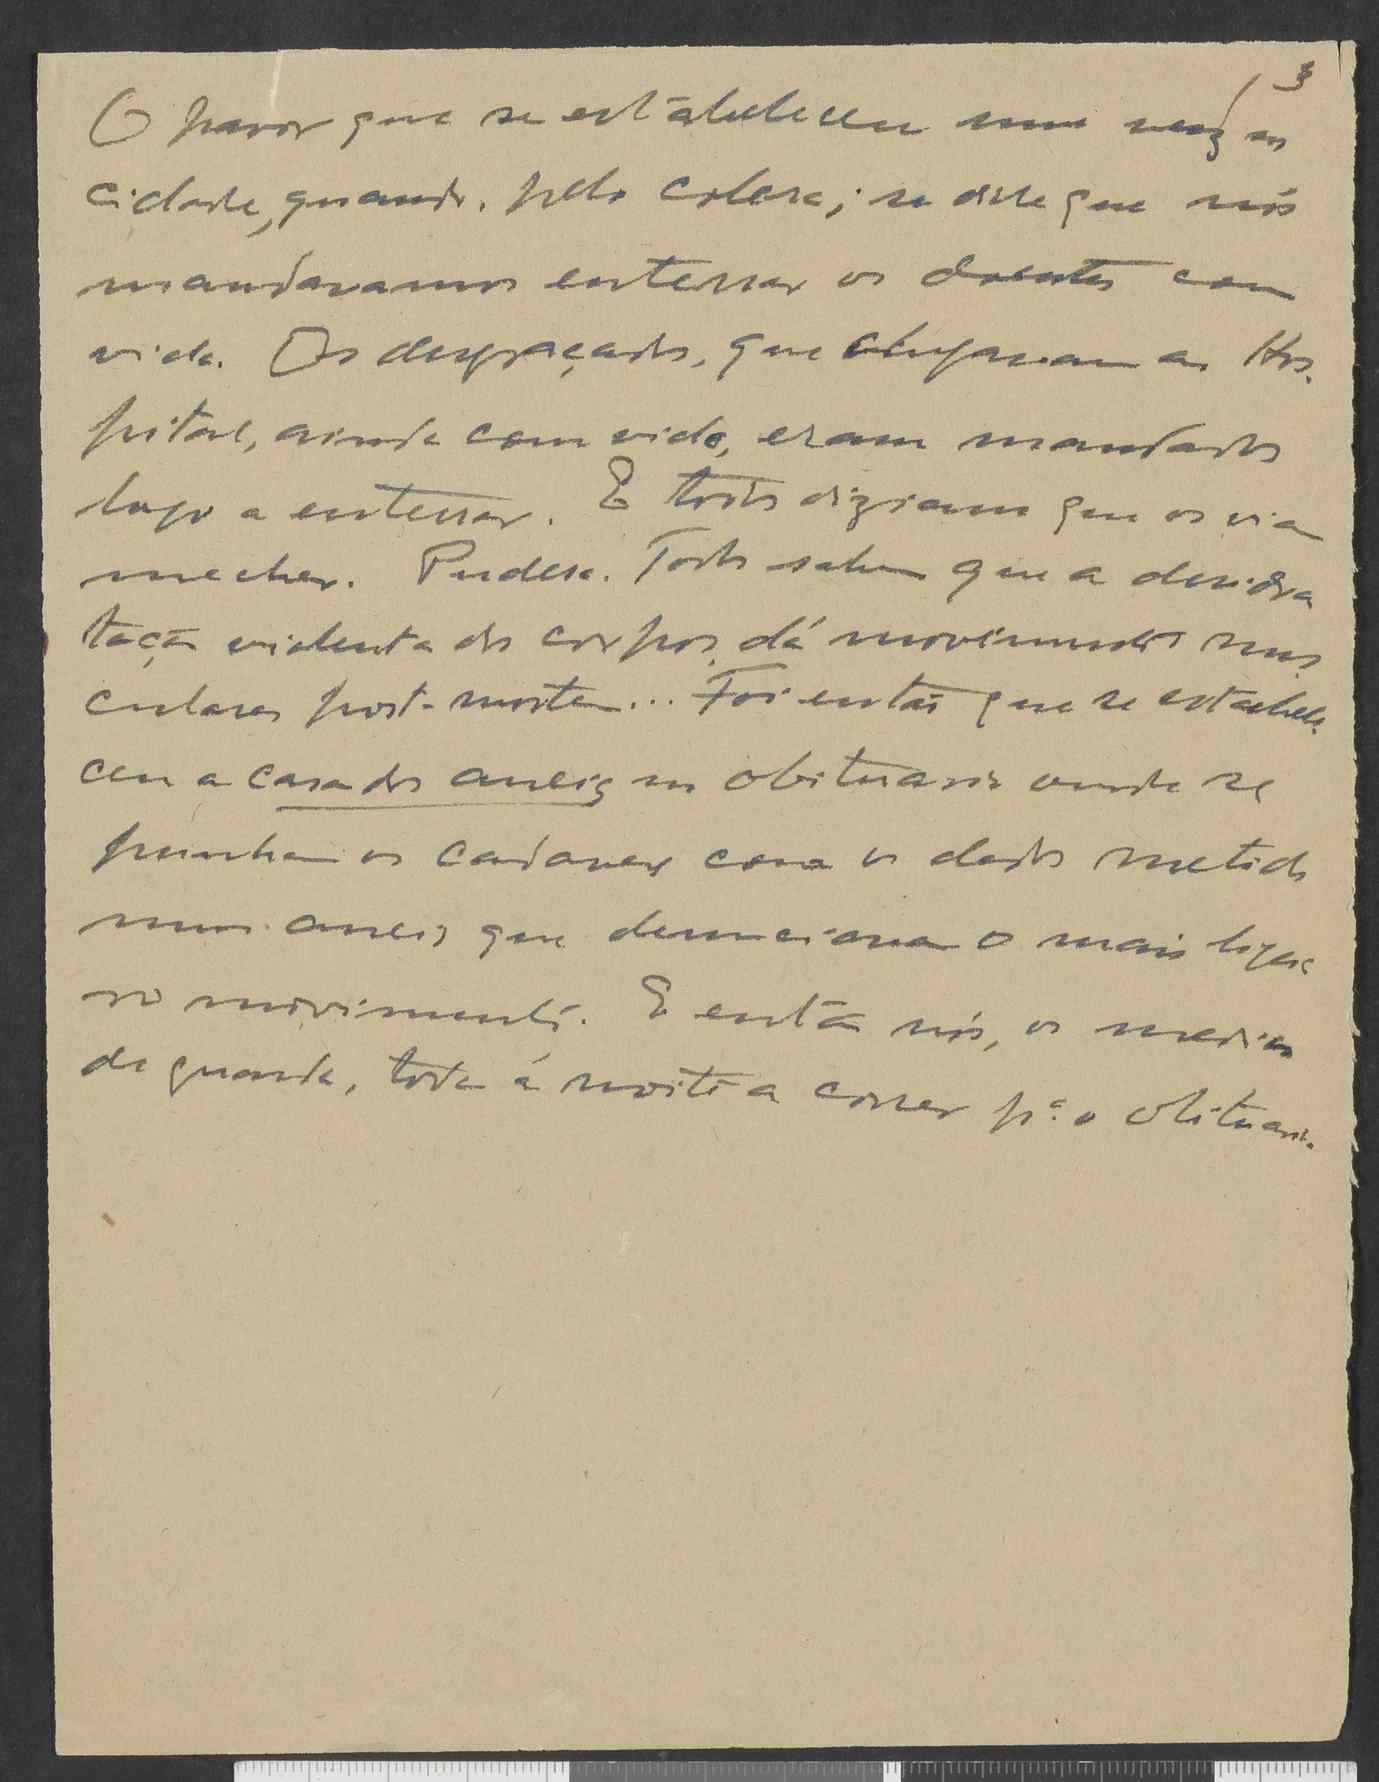 3
O pavor que se estabeleceu uma vez, na
cidade, quando, pelo colera; se disse que nós
mandavamos enterrar os doentes com
vida. Os desgraçados, que chegavam ao Hos-
pital, ainda com vida, eram mandados
logo a enterrar. E todos diziam que os via
mecher. Pudera. Todos sabem que a desidra
tação violenta dos corpos, dá movimentos mus
culares post-mortem... Foi então que se estabele-
ceu a casa dos aneis no obituario onde se
punham os cadaveres com os dedos metidos
nuns aneis que denunciava o mais ligei
ro movimento. E então nós, os medicos
de guarda, toda a noite a correr pª o obituario.